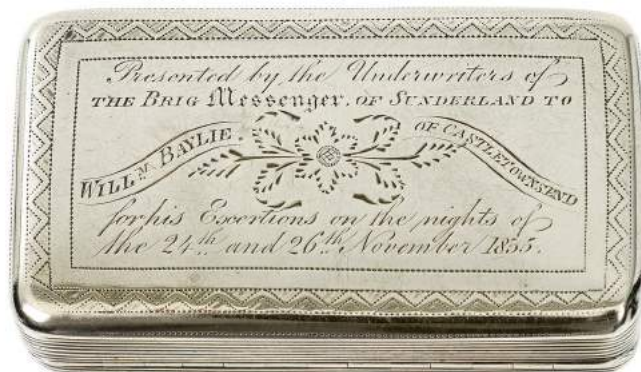 Presented by the Underwriters of
THE BRIG Messenger, OF SUNDERLAND TO
WILLM BAYLIE. OF CASTLETOWNSEND
for his Exertions on the nights of
the 24th and 26th November 1835.